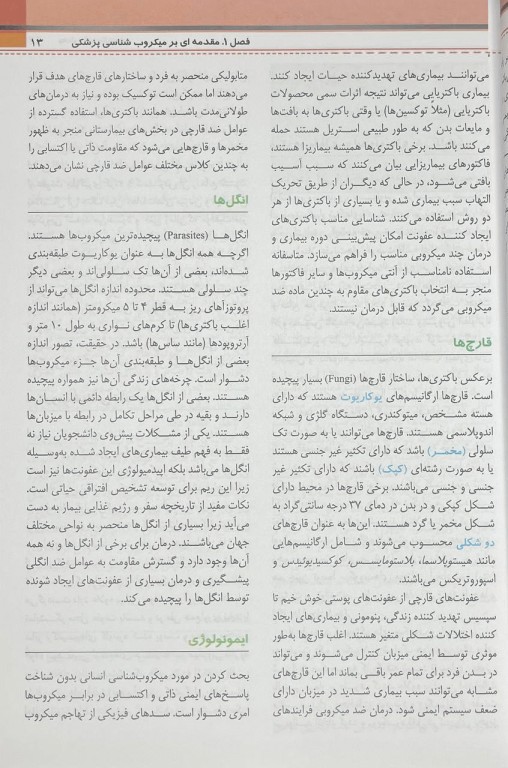 فصل ۱. مقدمه ای بر میکروب شناسی پزشکی ۱۳
می‌توانند بیماری‌های تهدیدکننده حیات ایجاد کنند.
بیماری باکتریایی می‌تواند نتیجه اثرات سمی محصولات
باکتریایی (مثلا توکسین‌ها) یا وقتی باکتری‌ها به بافت‌ها
و مایعات بدن که به طور طبیعی استریل هستند حمله
می‌کنند باشد. برخی باکتری‌ها همیشه بیماریزا هستند،
فاکتورهای بیماریزایی بیان می‌کنند که سبب آسیب
بافتی می‌شود، در حالی که دیگران از طریق تحریک
التهاب سبب بیماری شده و یا بسیاری از باکتری‌ها از هر
دو روش استفاده می‌کنند. شناسایی مناسب باکتری‌های
ایجاد کننده عفونت امکان پیش‌بینی دوره بیماری و
درمان چند میکروبی مناسب را فراهم می‌سازد. متاسفانه
استفاده نامناسب از آنتی میکروب‌ها و سایر فاکتورها
منجر به انتخاب باکتری‌های مقاوم به چندین ماده ضد
میکروبی می‌گردد که قابل درمان نیستند.
قارچ‌ها
برعکس باکتری‌ها، ساختار قارچ‌ها (Fungi) بسیار پیچیده
است. قارچ‌ها ارگانیسم‌های یوکاریوت هستند که دارای
هسته مشخص، میتوکندری، دستگاه گلژی و شبکه
اندوپلاسمی هستند. قارچ‌ها می‌توانند یا به صورت تک
سلولی (مخمر) باشد که دارای تکثیر غیر جنسی هستند
یا به صورت رشته‌ای (کپک) باشند که دارای تکثیر غیر
جنسی و جنسی می‌باشند. برخی قارچ‌ها در محیط دارای
شکل کپکی و در بدن در دمای ۳۷ درجه سانتی‌گراد به
شکل مخمر یا گرد هستند. این‌ها به عنوان قارچ‌های
دو شکلی محسوب می‌شوند و شامل ارگانیسم‌هایی
مانند هیستوپلاسما، بلاستومایسس، کوکسیدیوئیدس و
اسپوروتریکس می‌باشند.
عفونت‌های قارچی از عفونت‌های پوستی خوش خیم تا
سپسیس تهدید کننده زندگی، پنومونی و بیماری‌های ایجاد
کننده اختلالات شکلی متغیر هستند. اغلب قارچ‌ها به‌طور
موثری توسط ایمنی میزبان کنترل می‌شوند و می‌تواند
در بدن فرد برای تمام عمر باقی بماند اما این قارچ‌های
مشابه می‌توانند سبب بیماری شدید در میزبان دارای
ضعف سیستم ایمنی شود. درمان ضد میکروبی فرایندهای
متابولیکی منحصر به فرد و ساختارهای قارچ‌های هدف قرار
می‌دهند اما ممکن است توکسیک بوده و نیاز به درمان‌های
طولانی‌مدت باشد. همانند باکتری‌ها، استفاده گسترده از
عوامل ضد قارچی در بخش‌های بیمارستانی منجر به ظهور
مخمرها و قارچ‌هایی می‌شود که مقاومت ذاتی یا اکتسابی را
به چندین کلاس مختلف عوامل ضد قارچی نشان می‌دهند.
انگل‌ها
انگل‌ها (Parasites) پیچیده‌ترین میکروب‌ها هستند.
اگرچه همه انگل‌ها به عنوان یوکاریوت طبقه‌بندی
شده‌اند، بعضی از آن‌ها تک سلولی‌اند و بعضی دیگر
چند سلولی هستند. محدوده اندازه انگل‌ها می‌تواند از
پروتوزآهای ریز به قطر ۴ تا ۵ میکرومتر (همانند اندازه
اغلب باکتری‌ها) تا کرم‌های نواری به طول ۱۰ متر و
آرتروپودها (مانند ساس‌ها) باشد. در حقیقت، تصور اندازه
بعضی از انگل‌ها و طبقه‌بندی آن‌ها جزء میکروب‌ها
دشوار است. چرخه‌های زندگی آن‌ها نیز همواره پیچیده
هستند. بعضی از انگل‌ها یک رابطه دائمی با انسان‌ها
دارند و بقیه در طی مراحل تکامل در رابطه با میزبان‌ها
هستند. یکی از مشکلات پیش‌روی دانشجویان نیاز نه
فقط به فهم طیف بیماری‌های ایجاد شده به‌وسیله
انگل‌ها می‌باشد بلکه اپیدمیولوژی این عفونت‌ها نیز است
زیرا این ریم برای توسعه تشخیص افتراقی حیاتی است.
نکات مفید از تاریخچه سفر و رژیم غذایی بیمار به دست
می‌آید زیرا بسیاری از انگل‌ها منحصر به نواحی مختلف
جهان می‌باشند. درمان برای برخی از انگل‌ها و نه همه
آن‌ها وجود دارد و گسترش مقاومت به عوامل ضد انگلی
پیشگیری و درمان بسیاری از عفونت‌های ایجاد شونده
توسط انگل‌ها را پیچیده می‌کند.
ایمونولوژی
بحث کردن در مورد میکروب‌شناسی انسانی بدون شناخت
پاسخ‌های ایمنی ذاتی و اکتسابی در برابر میکروب‌ها
امری دشوار است. سدهای فیزیکی از تهاجم میکروب